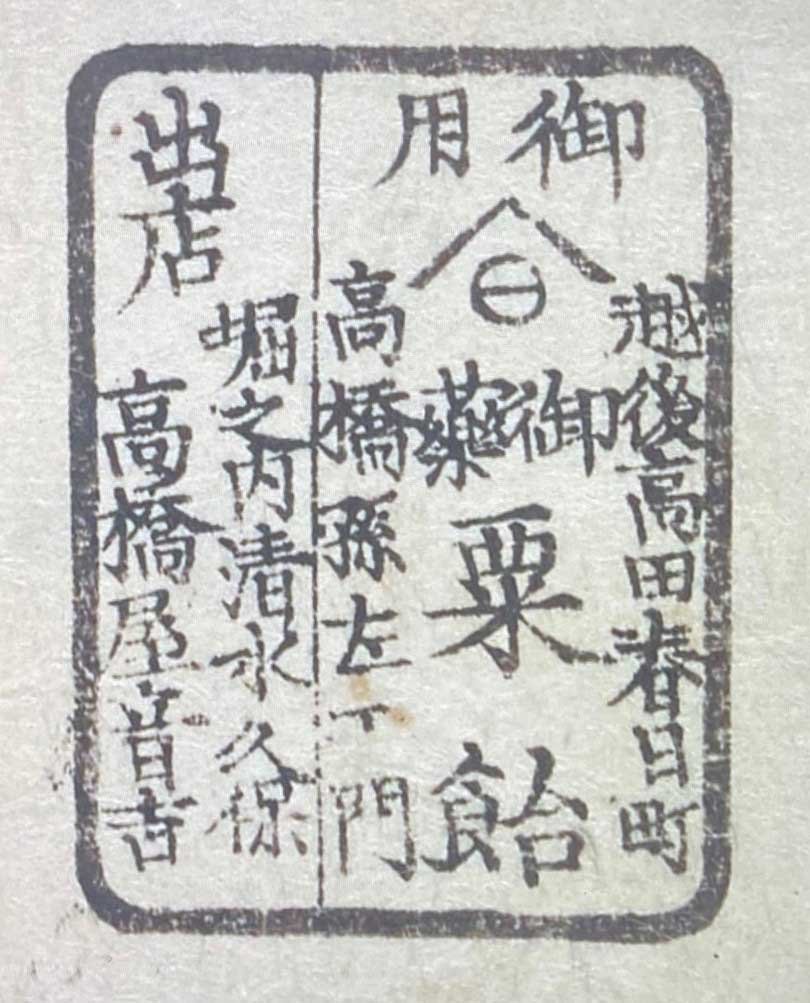 御用
越後高田春日町
御藥
粟
飴
高橋孫左エ門
出店
堀之内清水久保
高橋屋音吉